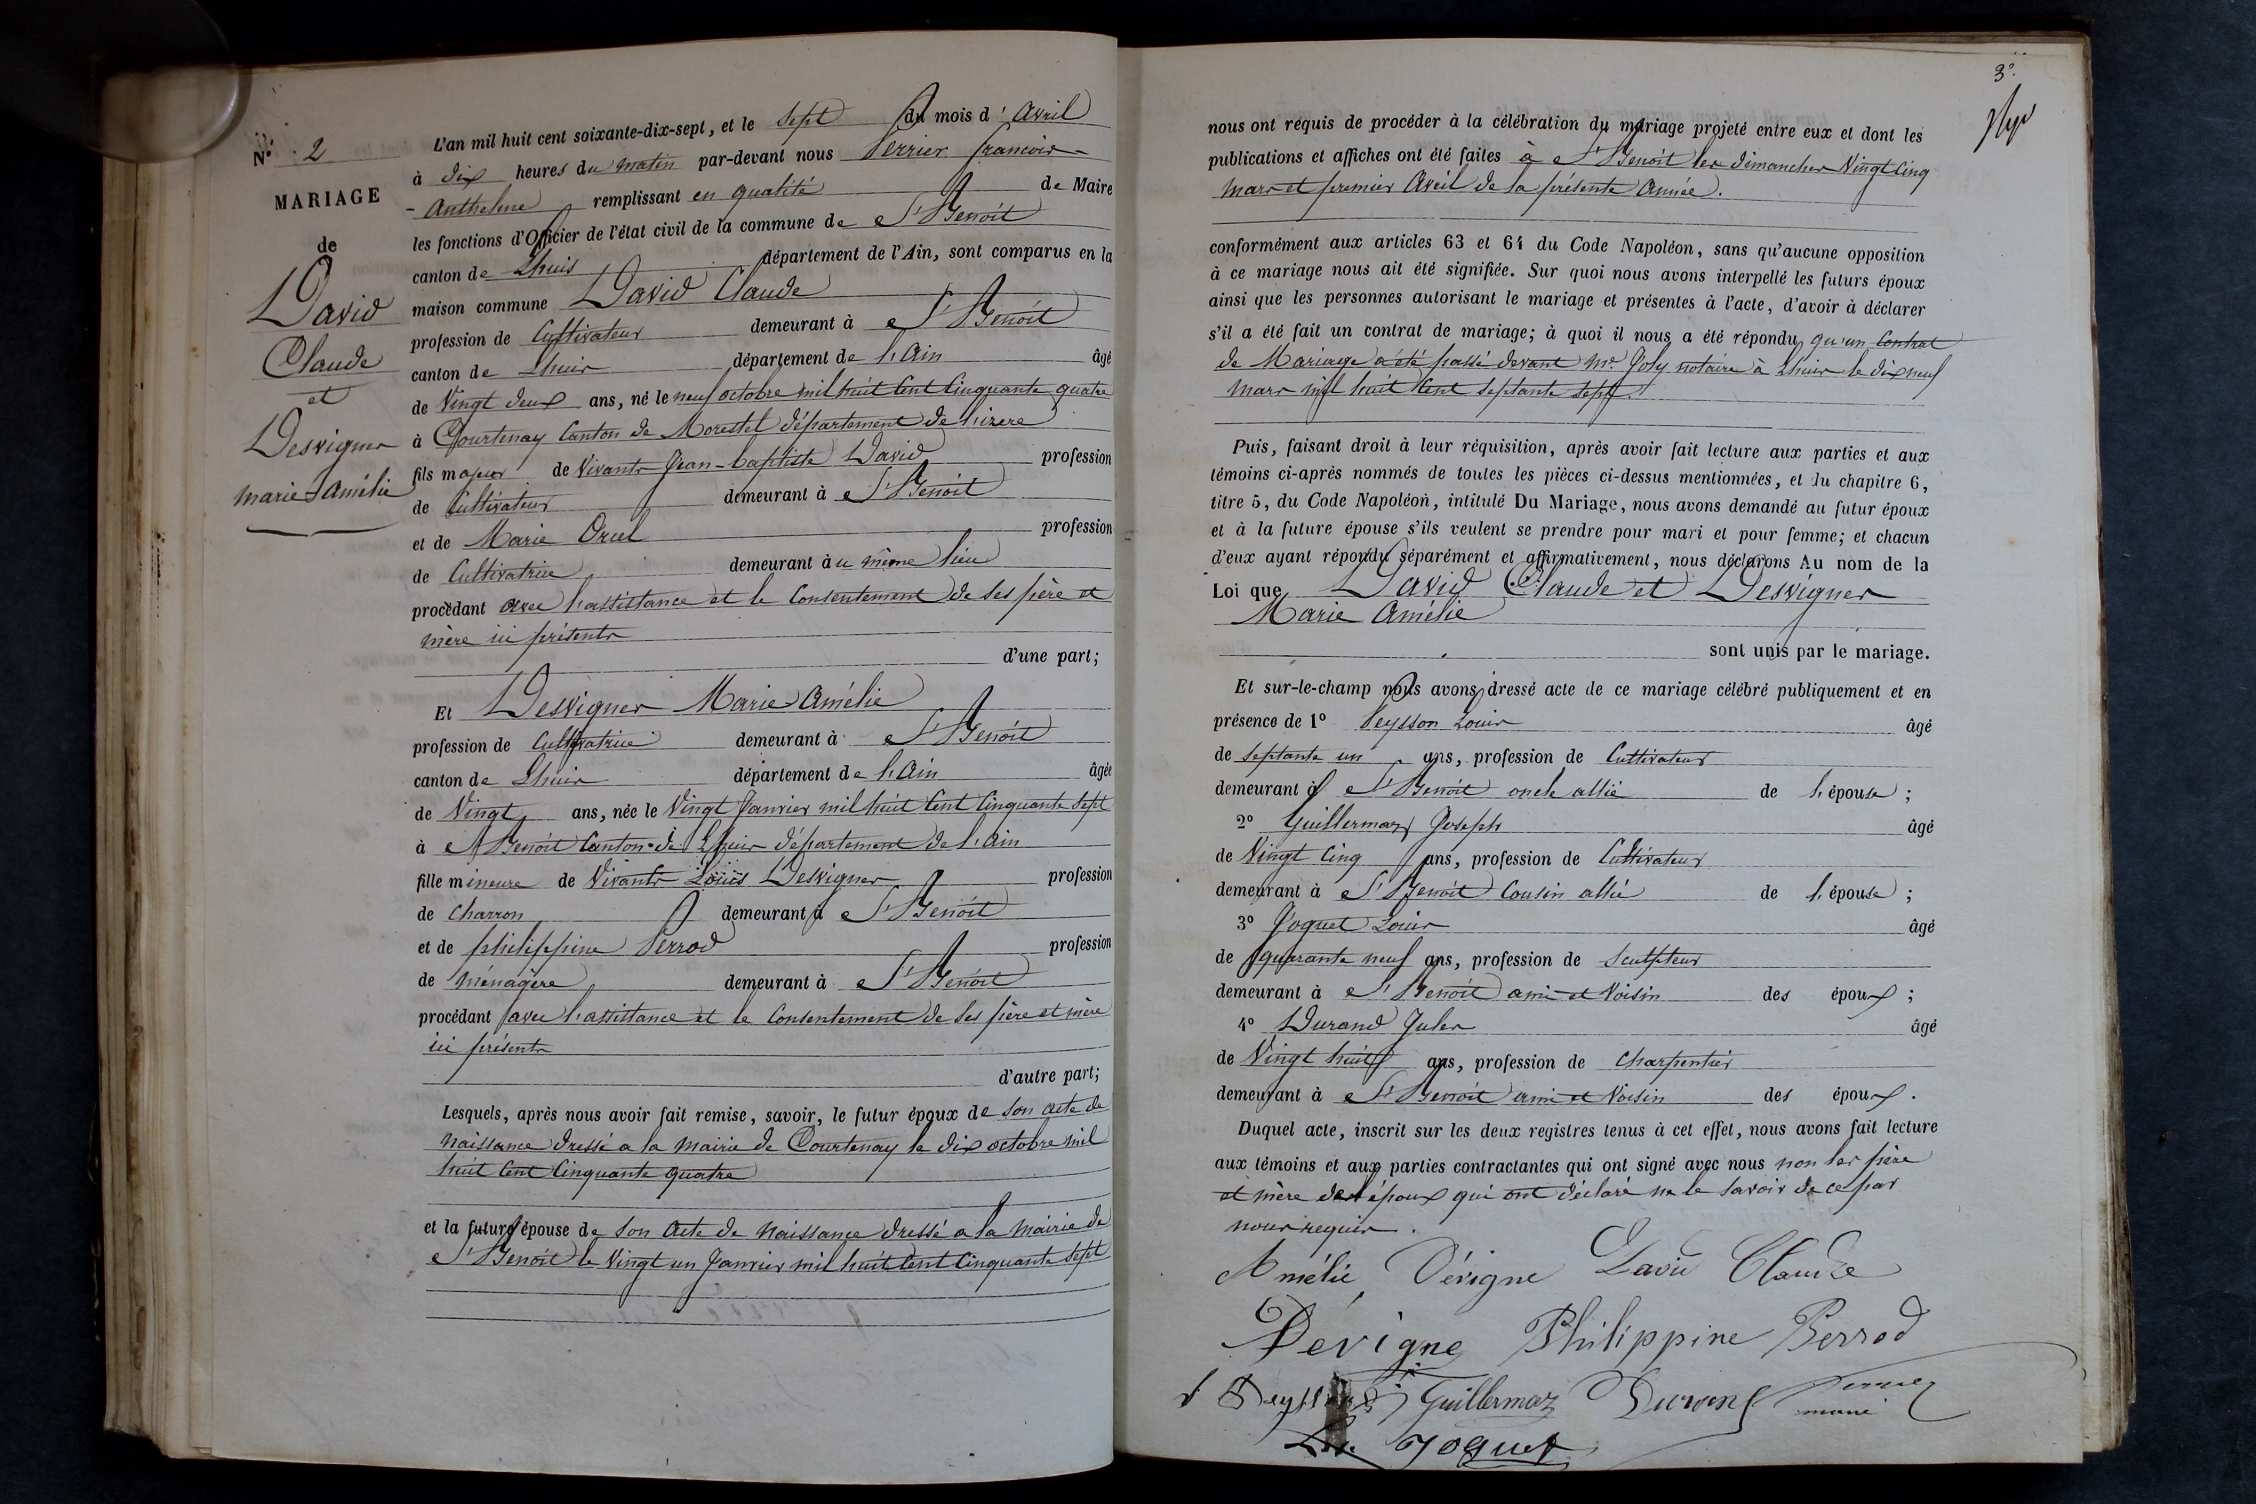 Nº 2
MARIAGE
de
David
Claude
et
Desvignes
marie-Amélie
L'an mil huit cent soixante-dix-sept, et le sept du mois d'Avril
à dix heures du matin par-devant nous Perrier francois-
- Anthelme remplissant en qualité de Maire
les fonctions d'Officier de l'état civil de la commune de St Benoit
canton de Lhuis département de l'Ain, sont comparus en la
maison commune David Claude
profession de Cultivateur demeurant à St Benoit
canton de Lhuis département de l'Ain âgé
de Vingt deux ans, né le neuf octobre mil huit Cent Cinquante quatre
à Courtenay Canton de Morestel département de l'izere
fils majeur de Vivants Jean-baptiste David profession
de Cultivateur demeurant à St Benoit
et de Marie Orcel profession
de Cultivatrice demeurant au même lieu
procédant avec l'assistance et le Consentement de ses père et
mère ici présents
d'une part;
Et Desvignes Marie Amélie
profession de Cultivatrice demeurant à St Benoit
canton de Lhuis département de l'Ain âgée
de Vingt ans, née le Vingt Janvier mil huit Cent Cinquante sept
à St Benoit Canton de Lhuis département de l'Ain
fille mineure de Vivants Louis Desvignes profession
de charron demeurant à St Benoit
et de philippine Perrod profession
de ménagère demeurant à St Benoit
procédant avec l'assistance et le Consentement de ses père et mère
ici présents
d'autre part;
Lesquels, après nous avoir fait remise, savoir, le futur époux de son acte de
naissance dressé a la mairie de Courtenay le dix octobre mil
huit Cent Cinquante quatre
et la future épouse de son acte de naissance dressé a la mairie de
St Benoit le Vingt un Janvier mil huit Cent Cinquante sept
3º
nous ont requis de procéder à la célébration du mariage projeté entre eux et dont les
publications et affiches ont été faites à St Benoit les dimanches Vingt Cinq
mars et premier Avril de la présente Année.
conformément aux articles 63 et 64 du Code Napoléon, sans qu'aucune opposition
à ce mariage nous ait été signifiée. Sur quoi nous avons interpellé les futurs époux
ainsi que les personnes autorisant le mariage et présentes à l'acte, d'avoir à déclarer
s'il a été fait un contrat de mariage; à quoi il nous a été répondu qu'un Contrat
de Mariage a été passé devant Me Joly notaire à Lhuis le dix neuf
mars mil huit Cent septante sept.
Puis, faisant droit à leur réquisition, après avoir fait lecture aux parties et aux
témoins ci-après nommés de toutes les pièces ci-dessus mentionnées, et du chapitre 6,
titre 5, du Code Napoléon, intitulé Du Mariage, nous avons demandé au futur époux
et à la future épouse s'ils veulent se prendre pour mari et pour femme; et chacun
d'eux ayant répondu séparément et affirmativement, nous déclarons Au nom de la
Loi que David Claude et Desvignes
Marie Amélie
sont unis par le mariage.
Et sur-le-champ nous avons dressé acte de ce mariage célébré publiquement et en
présence de 1º Peysson Louis âgé
de septante un ans, profession de Cultivateur
demeurant à St Benoit oncle allié de l'épouse ;
2º Guillermaz Joseph âgé
de Vingt Cinq ans, profession de Cultivateur
demeurant à St Benoit Cousin allié de l'épouse ;
3º Joguet Louis âgé
de quarante neuf ans, profession de sculpteur
demeurant à St Benoit ami et Voisin des époux ;
4º Durand Jules âgé
de Vingt huit ans, profession de charpentier
demeurant à St Benoit ami et Voisin des époux .
Duquel acte, inscrit sur les deux registres tenus à cet effet, nous avons fait lecture
aux témoins et aux parties contractantes qui ont signé avec nous non les père
et mère de l'époux qui ont déclaré ne le savoir de ce par
nous requis.
Amélie Dévigne David Claude
Devigne Philippine Perrod
Guillermaz Durand
Joguet